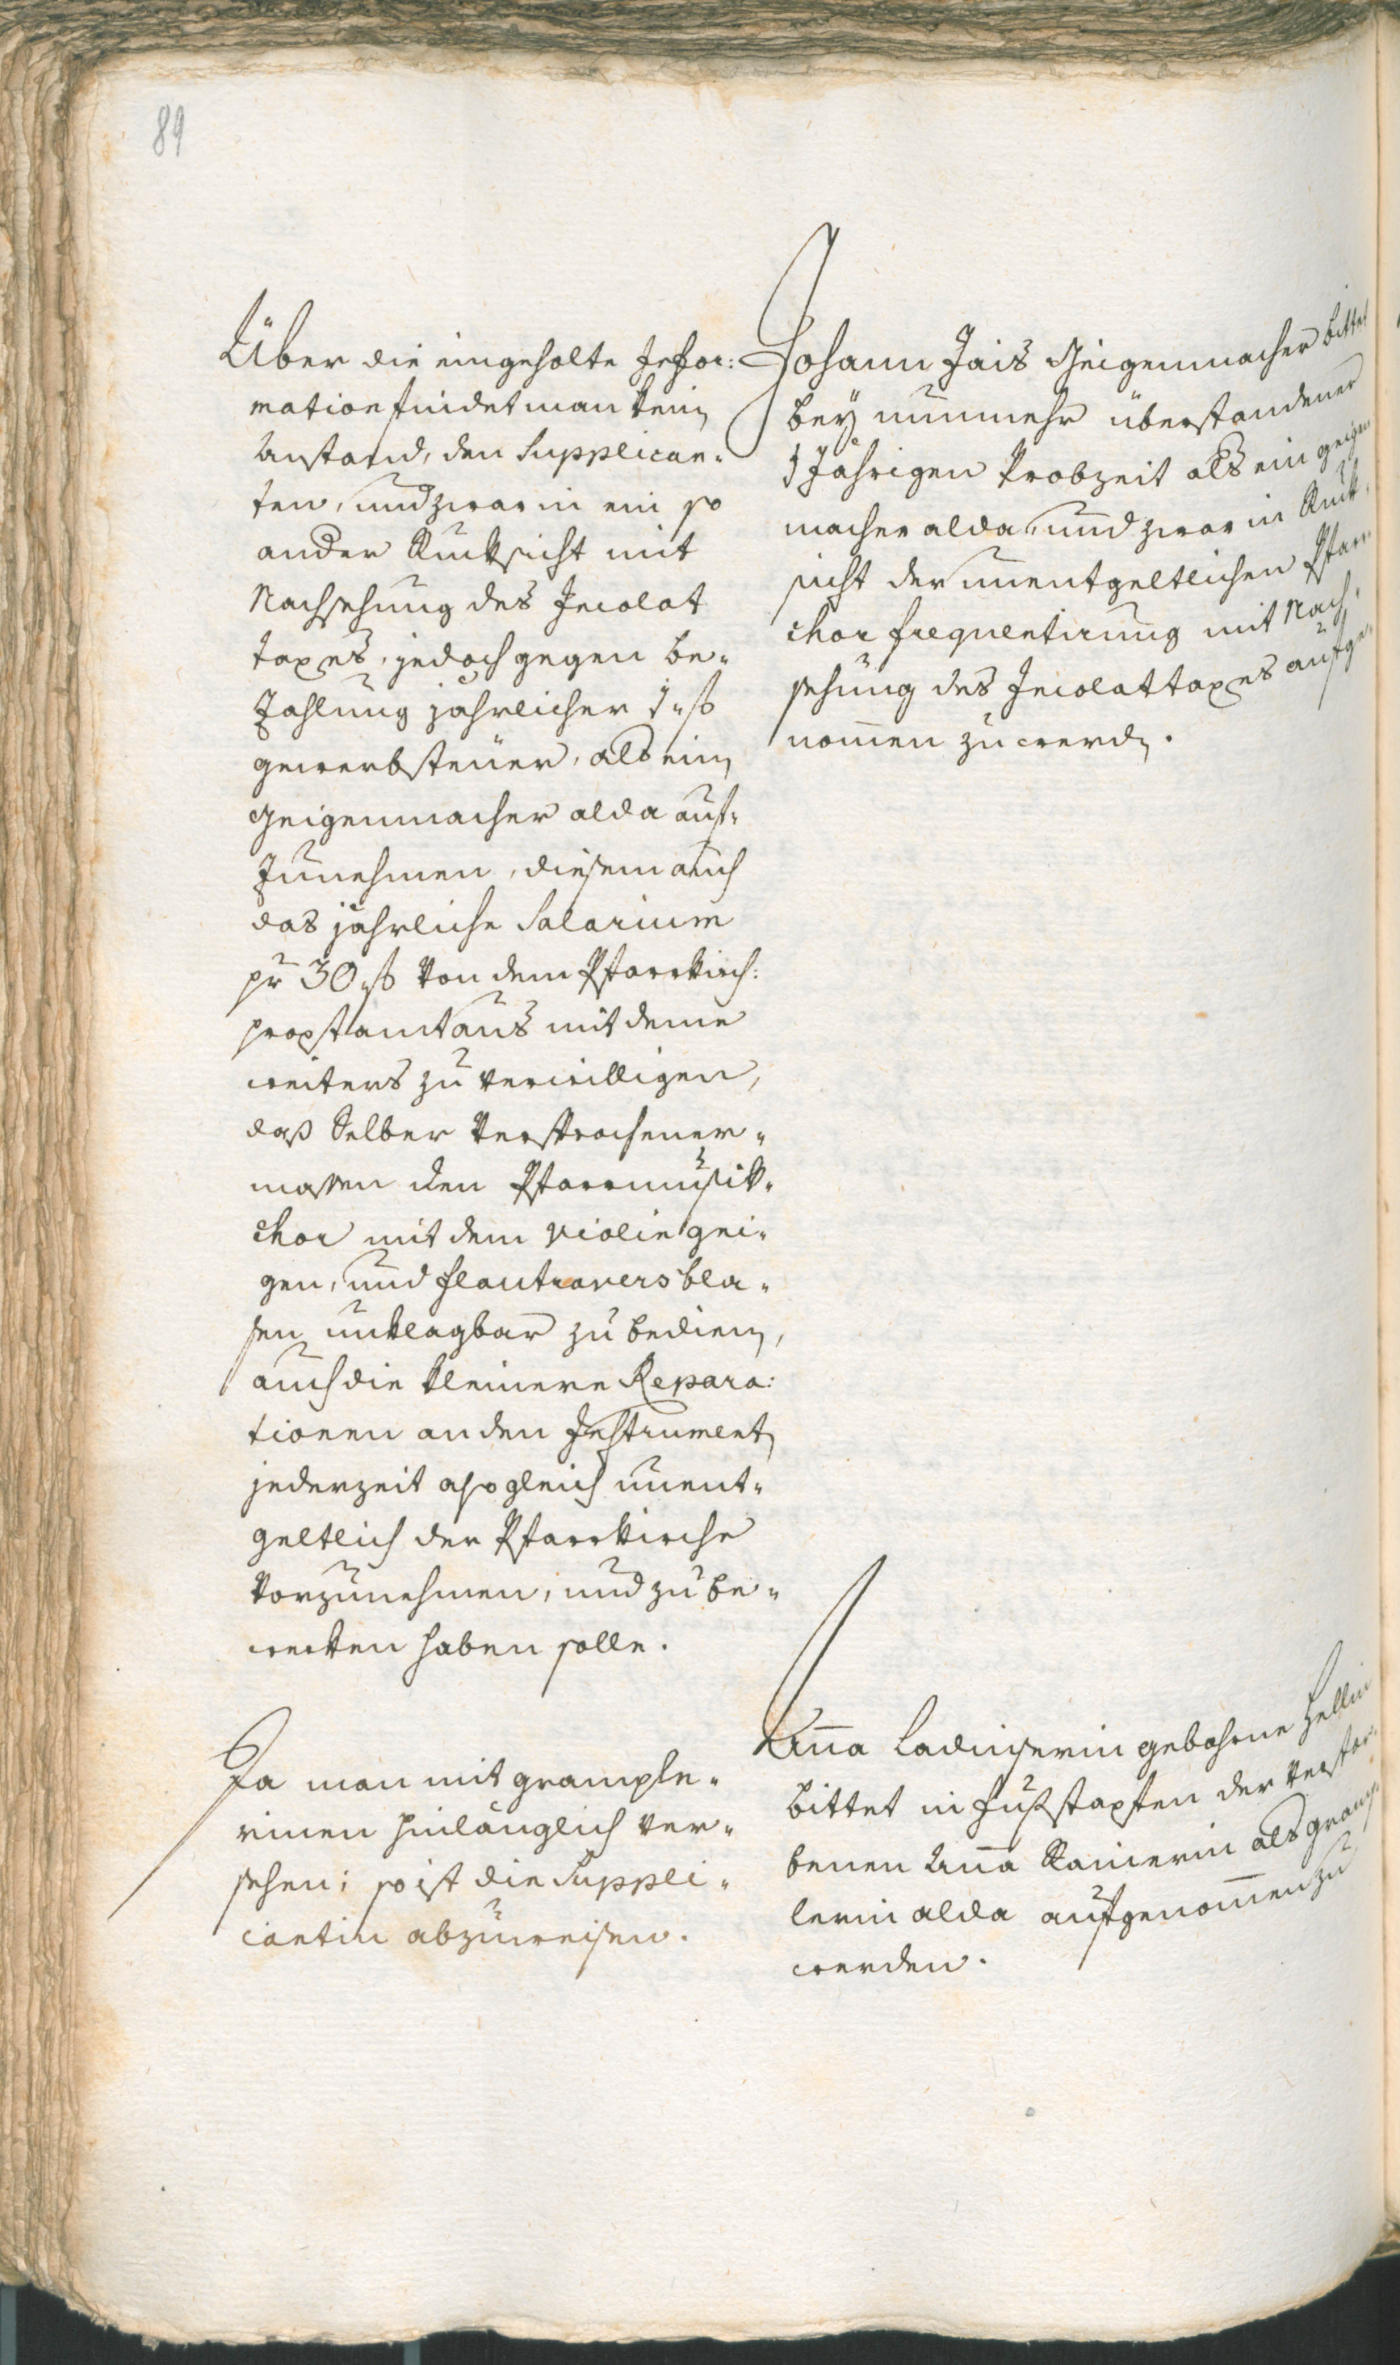 89
Über die eingeholte Infor:
mation findet man kein
Anstand, den Supplican-
ten, und zwar in ein so
ander Rucksicht mit
Nachsehung des Incolat
taxes, jedoch gegen be-
zahlung jährlicher 1 f
gewerbsteüer, als ein
Geigenmacher alda auf-
zunehmen, diesem auch
das jährliche Salarium
pr 30 f von dem Pfarrkirch:
propstamt aus mit deme
weiters zu verwilligen,
daß Selber versprochener-
massen den Pfarrmusik-
chor mit dem Violin gei-
gen, und flautravers bla-
sen unklagbar zu bedien,
auch die kleinere Repara:
tionen an den Instrument
jederzeit also gleich unent-
geltlich der Pfarrkirche
vorzunehmen, und zu be-
werken haben solle.
Da man mit grample-
rinen hinlänglich ver-
sehen; so ist die Suppli-
cantin abzuweisen.
Johann Jais Geigenmacher bittet
bey nunmehr überstandener
1 Jährigen Probzeit als ein geigen
macher alda, und zwar in Ruck-
sicht der unentgeltlichen Pfarr
chor frequentirung mit Nach-
sehung des Incolattaxes aufge-
nommen zu werdn.
Anna Ladinserin gebohrne Hellin
bittet in Fußstapfen der verstor-
benen Anna Rainerin als gramp-
lerin alda aufgenommen zu
werden.